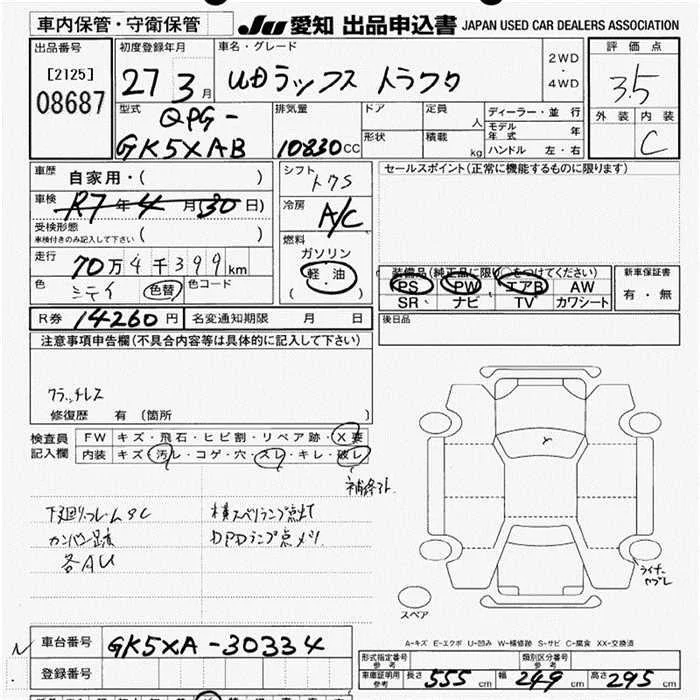 車内保管・守衛保管
JU 愛知 出品申込書 JAPAN USED CAR DEALERS ASSOCIATION
出品番号
[2125]
08687
初度登録年月
27 3月
車名・グレード
UDラックス トラクタ
2WD
・
4WD
評価点
3.5
外装 内装
C
型式
QPG-
GK5XAB
排気量
10830CC
ドア
形状
定員 人
積載 kg
ディーラー・並行
モデル年式 年
ハンドル 左・右
車歴 自家用・( )
車検 R7年4月(30日)
受検形態
車検付きのみ記入して下さい ( )
走行 70万4千399km
色 シテイ 色替 色コード
シフト
トクS
冷房
A/C
燃料
ガソリン
軽油
( )
セールスポイント(正常に機能するものに限ります)
装備品(純正品に限り○をつけてください)
PS PW エアB AW
SR ナビ TV カワシート
新車保証書
有・無
R券 14260円 名変通知期限 月 日
後日品
注意事項申告欄(不具合内容等は具体的に記入して下さい)
クラッチレス
修復歴 有(箇所 )
検査員記入欄
FW キズ・飛石・ヒビ割・リペア跡・X要
内装 キズ・汚レ・コゲ・穴・スレ・キレ・破レ
補修あト
下回リフレームSC
カンバン跡
各AU
横スベリランプ点灯
DPDランプ点メツ
ライナーヤブレ
スペア
A-キズ E-エクボ U-凹み W-補修跡 S-サビ C-腐食 XX-交換済
車台番号 GK5XA-30334
登録番号
型式指定番号参考
類別区分番号参考
車庫証明用参考 長さ 555cm 幅 249cm 高さ 295cm